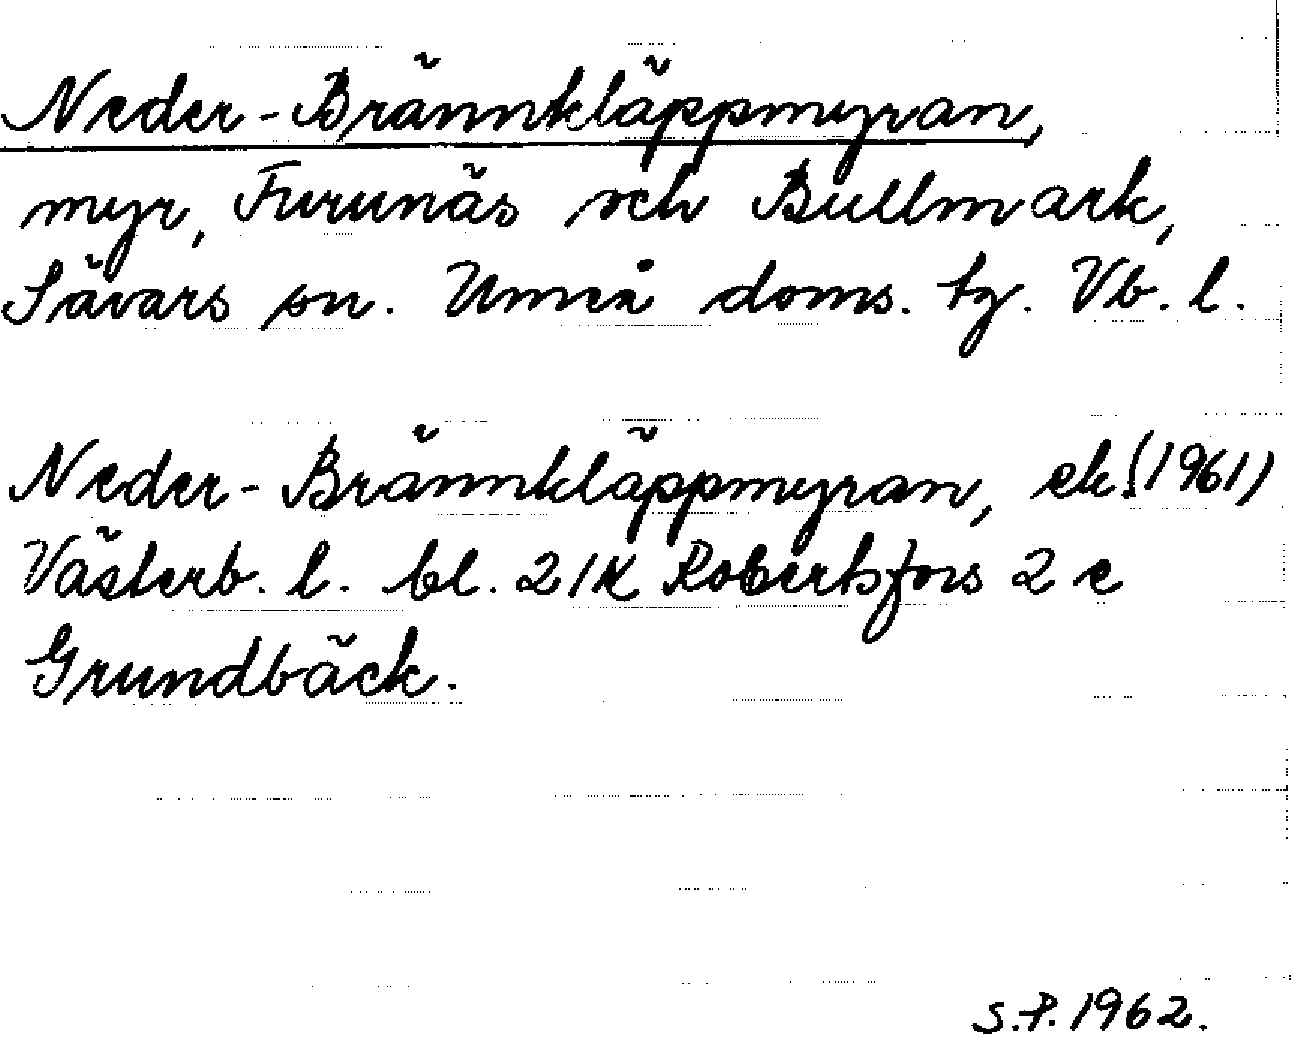 Neder-Brännkläppmyran,
myr, Furunäs och Bullmark,
Sävars sn. Umeå doms. tg. Vb. l.
Neder-Brännkläppmyran, ek. (1961)
Västerb. l. bl. 21K Robertsfors 2 c
Grundbäck.
S.P. 1962.